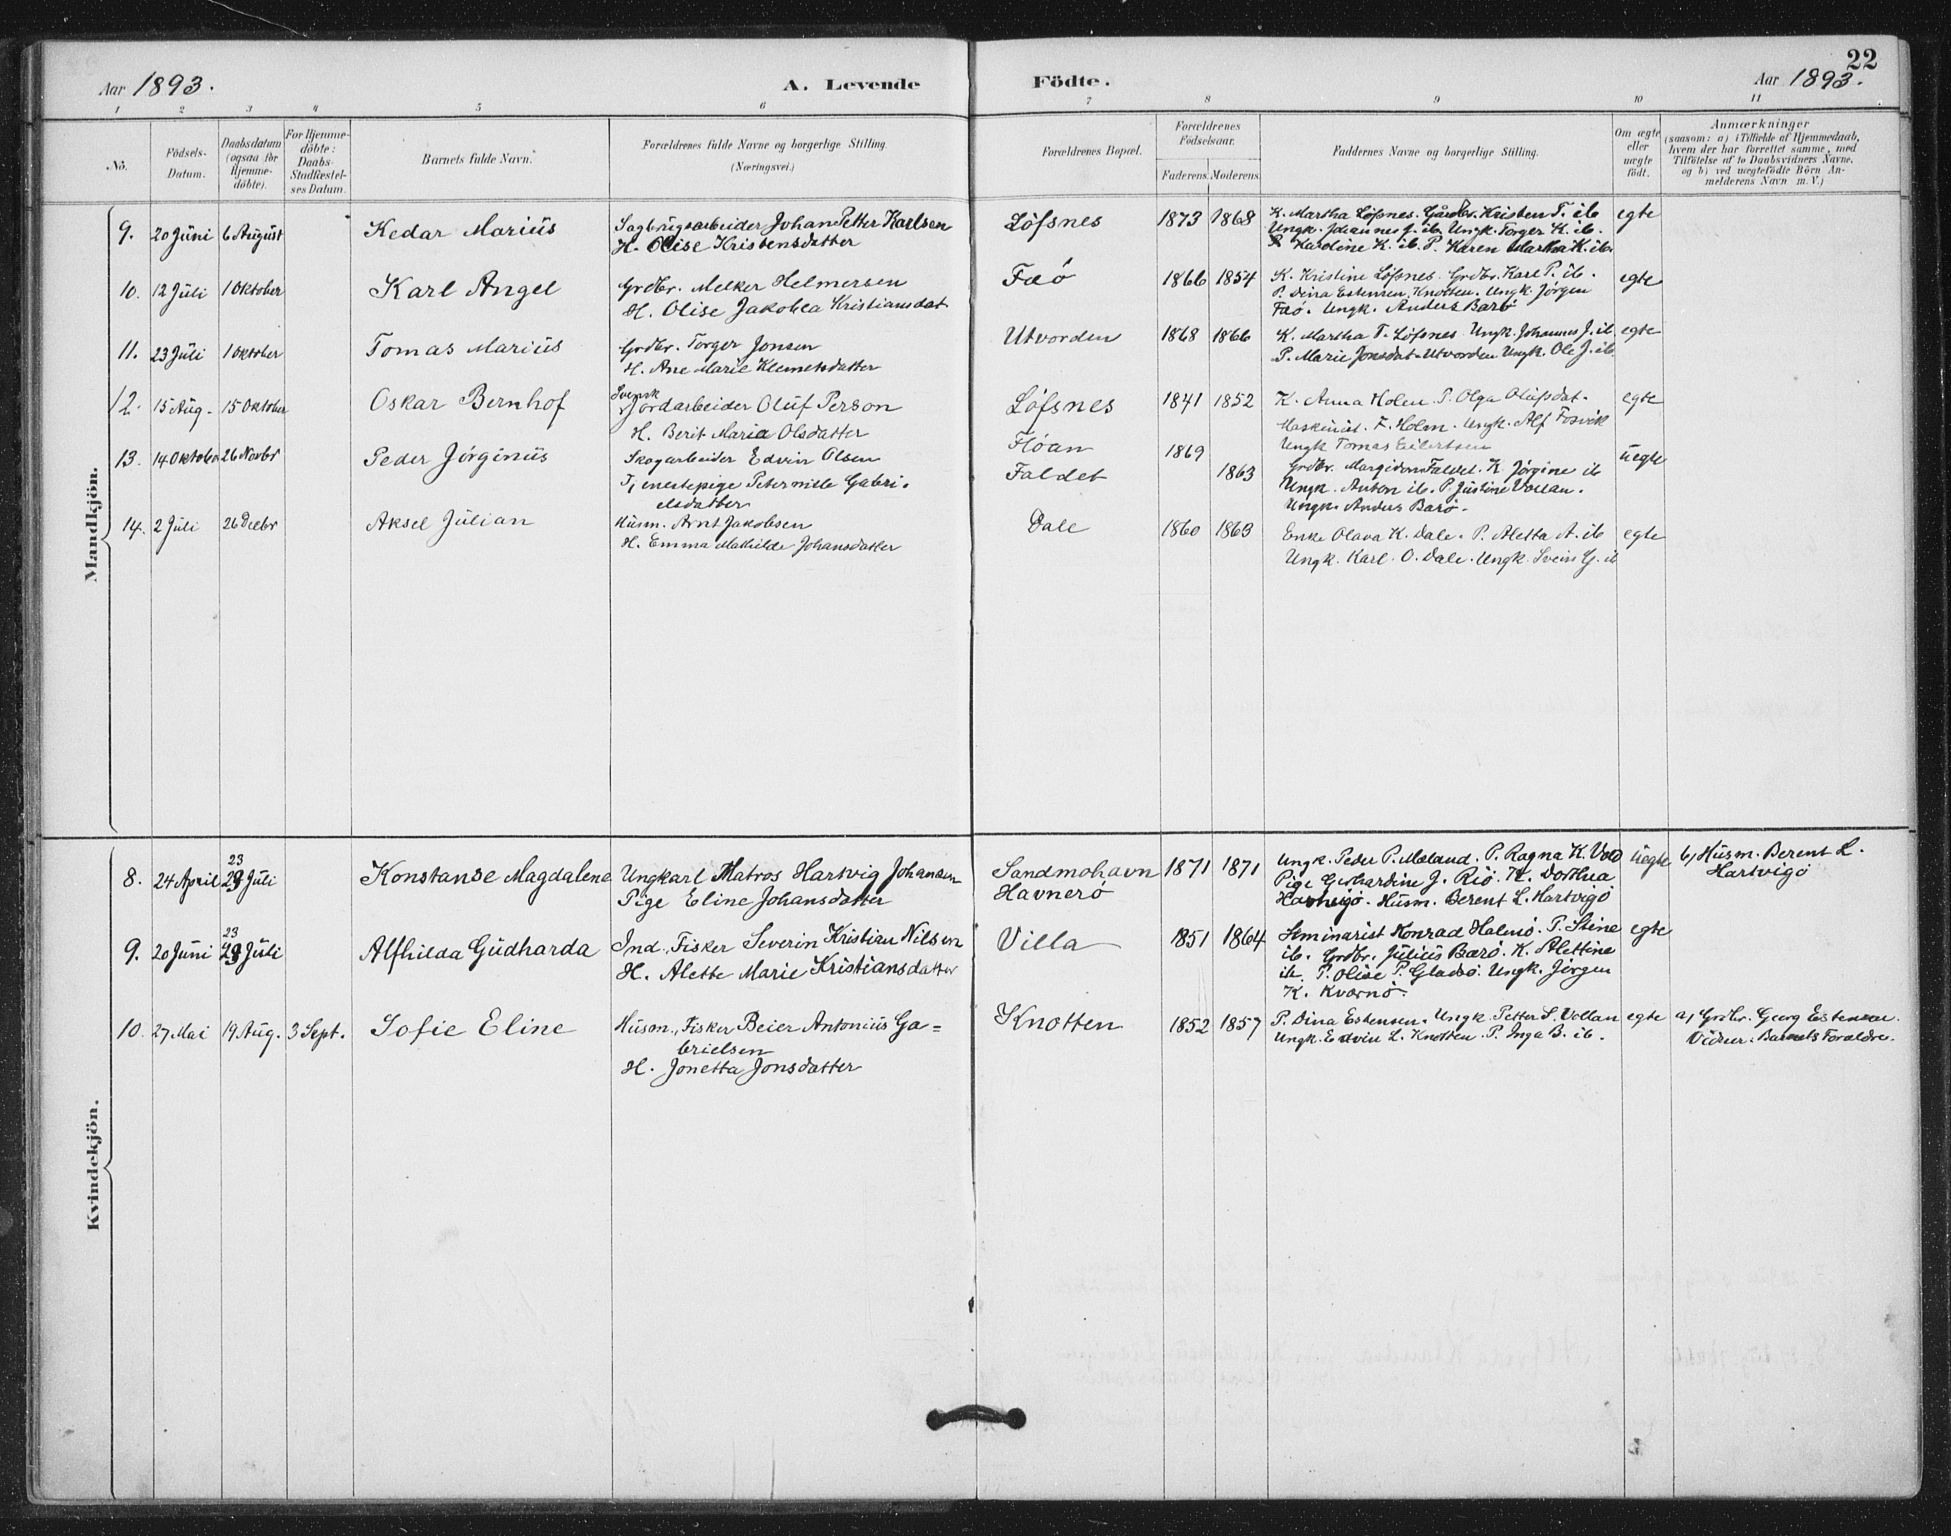 22
Aar 1893.
A. Levende Födte.
Aar 1893.
1 2 3 4 5 6 7 8 9 10 11
No.
Födsels-Datum.
Daabsdatum (ogsaa for Hjemme-döbte).
For Hjemme-döbte: Daabs-Stadfæstel-ses Datum.
Barnets fulde Navn.
Forældrenes fulde Navne og borgerlige Stilling (Næringsvei.)
Forældrenes Bopæl.
Forældrenes Födselsaar.
Faderens. Moderens.
Faddernes Navne og borgerlige Stilling.
Om ægte eller uægte födt.
Anmærkninger
(saasom: a) i Tilfælde af Hjemmedaab,
hvem der har forrettet samme, med
Tilföielse af to Daabsvidners Navne,
og b) ved uægtefödte Börn An-
melderens Navn m. V.)
Mandkjön.
9. 20 Juni 6 August Kedar Marius Sagbrugsarbeider Johan Petter Karlsen Löfsnes 1873 1868 K. Martha Löfsnes. Gårdbr. Kristen T. ib egte
H. Olise Kristensdatter Ungk. Johannes J. ib. Ungk. Torger K. ib.
P. Kardine K. ib. P. Karen Martha K. ib.
10. 12 Juli 1 Oktober Karl Angel Grdbr. Melker Helmersen Faö 1866 1854 K. Kristine Löfsnes. Grdbr. Karl P. ib. egte
H. Olise Jakobea Kristiansdat P. Dina Estensen. Knotten. Ungk. Jörgen
Faö. Ungk. Anders Barö
11. 23 Juli 1 Oktober Tomas Marius Grdbr. Torger Jonsen Utvorden 1868 1866 K. Martha T. Löfsnes. Ungk. Johannes J. ib egte
H. Ane Marie Klemetsdatter P. Marie Jonsdat. Utvorden Ungk. Ole J. ib.
12. 15 Aug. 15 Oktober Oskar Bernhof Svensk Jordarbeider Oluf Person Löfsnes 1841 1852 K. Anna Holen. P. Olga Olufsdat. egte
H. Berit Maria Olsdatter Maskinist. F. Holm. Ungk. Alf Fosvik
Ungk Tomas Eilertsen
13. 14 Oktober 26 Novbr Peder Jörginus Skogarbeider Edvin Olsen Flöan 1869 uegte
Tjenestepige Peternille Gabri- Faldet 1863 Grdbr. Margidon Faldet. K. Jörgine ib
elsdatter Ungk. Anton ib. P. Justine Vollan.
Ungk. Anders Barö.
14. 2 Juli 26 Decbr Aksel Julian Husm. Arnt Jakobsen Dale 1860 1863 Enke Olava K. Dale. P. Aletta A. ib egte
H. Emma Mathilde Johansdatter Ungk. Karl. O. Dale. Ungk. Svein G. ib
Kvindekjön.
8. 24 April 23 Juli Konstanse Magdalene Ungkarl Matros Hartvig Johansen Sandmohavn 1871 1871 Ungk. Peder P. Mæland. P. Ragna K. Vold uegte b) Husm. Berent L.
Pige Eline Johansdatter Havnerö Pige Gerhardine J. Riö. K. Dorthea Hartvigö
Husm. Berent L. Hartvigö
9. 20 Juni 23 Juli Alfhilda Gudharda Ind., Fisker Severin Kristian Nilsen Villa 1851 1864 Seminarist Konrad Halmö. P. Stine egte
H. Alette Marie Kristiansdatter ib. Grdbr. Julius Barö. K. Alettine
ib. P. Olise P. Gladsö. Ungk. Jörgen
K. Kvarnö.
10. 27 Mai 19 Aug. 3 Sept. Sofie Eline Husm., Fisker Beier Antonius Ga= Knotten 1852 1857 P. Dina Estensen. Ungk. Petter L. Vollan egte a) Grdbr. Georg Estensen.
brielsen Ungk. Edvin L. Knotten. P. Inga B. ib. Vidner: Barnets Forældre.
H. Jonetta Jonsdatter